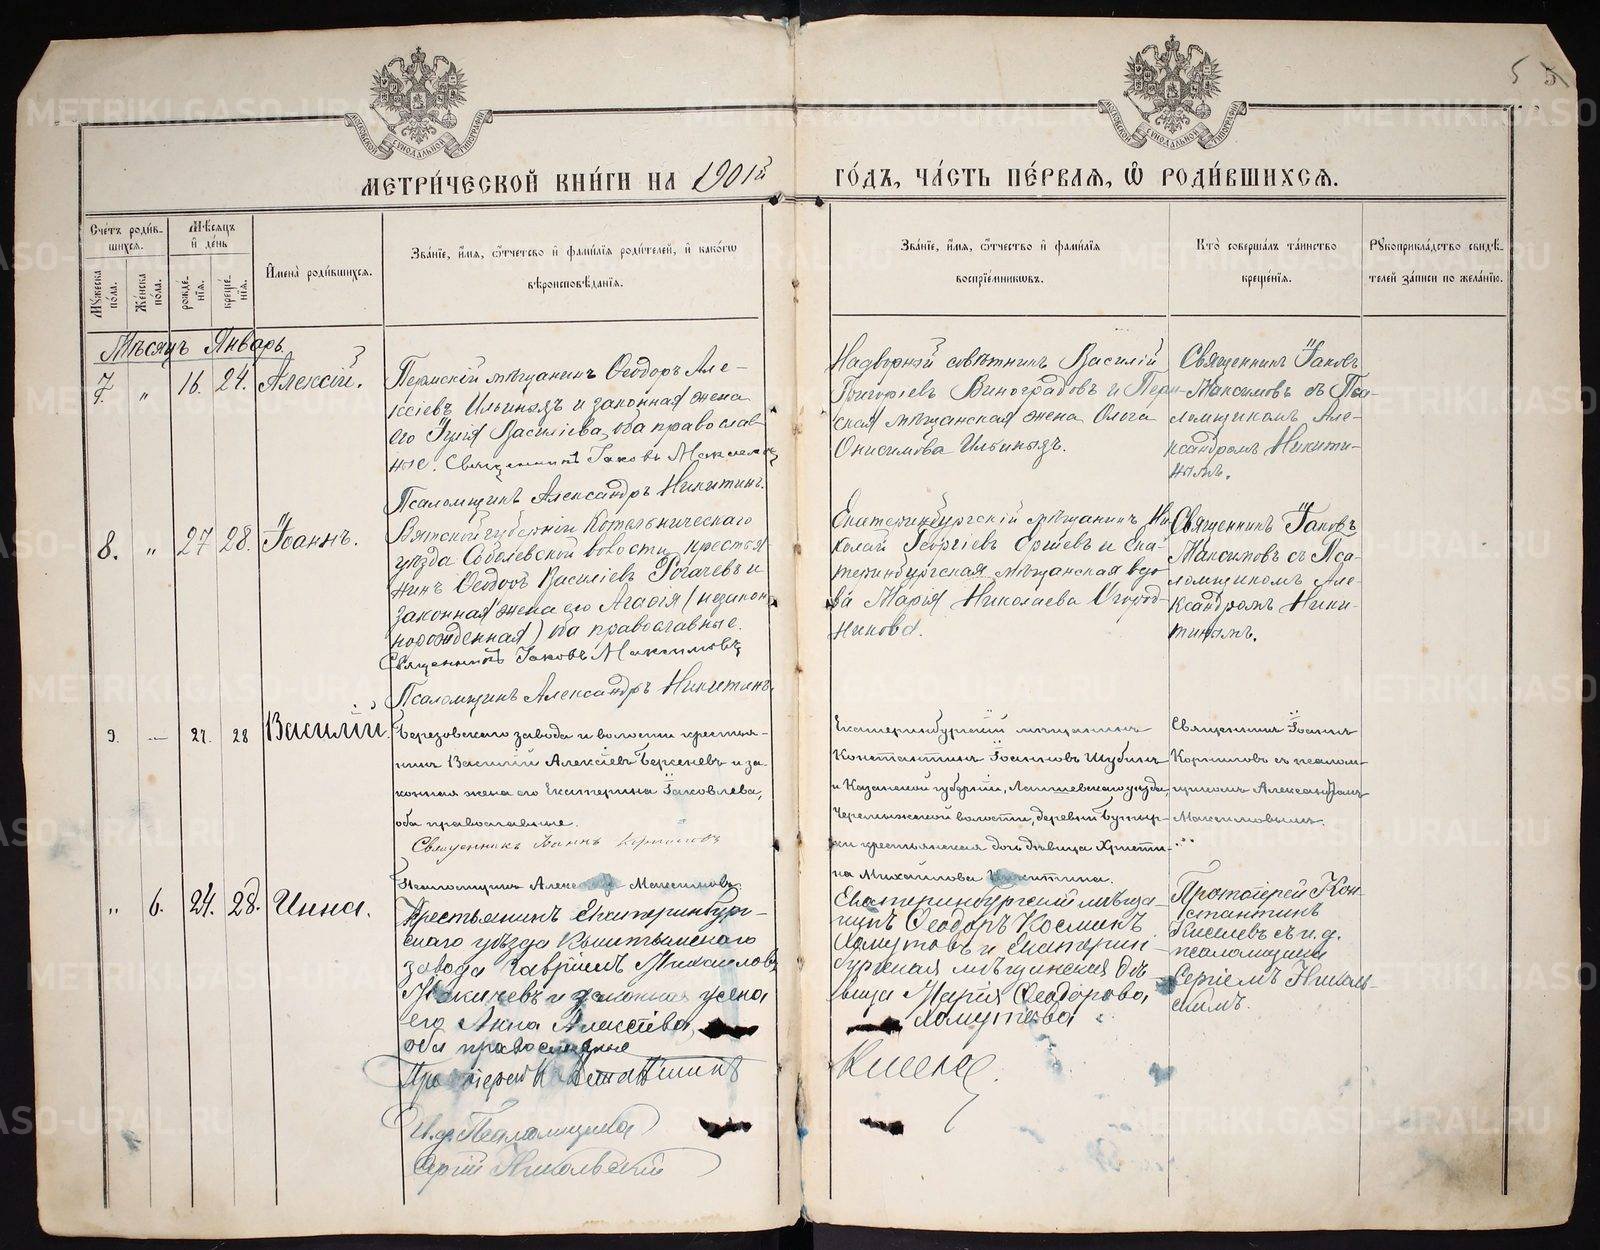 5 5
МЕТРИ́ЧЕСКОЙ КНИ́ГИ НА 1901й ГО́ДЪ, ЧА́СТЬ ПЕ́РВАЯ, Ѡ РОДИ́ВШИХСЯ.
Сче́тъ роди́в-
шихся.
Мꙋжеска по́ла.
Же́нска по́ла.
Мѣ́сяцъ
и҆ де́нь
рожде́-
нїя.
креще́-
нїя.
И҆мена̀ роди́вшихся.
Зва́нїе, и҆́мя, ѻ҆́тчество и҆ фами́лїя роди́телей, и҆ како́гѡ
вѣроисповѣ́данїя.
Зва́нїе, и҆́мя, ѻ҆́тчество и҆ фами́лїя
воспрїе́мникѡвъ.
Кто̀ соверша́лъ та́инство
креще́нїя.
Рꙋкоприкла́дство свидѣ́-
телей за́писи по жела́нїю.
Мѣсяцъ Январь.
7. " 16. 24. Алексій.
Пермскій мѣщанинъ Ѳеодоръ Але-
ксіевъ Ильиныхъ и законная жена
его Юлія Василіева, оба православ-
ные. Священникъ Іаковъ Максимовъ
Псаломщикъ Александръ Никитинъ.
Надворный совѣтникъ Василій
Григоріевъ Виноградовъ и Перм-
ская мѣщанская жена Ольга
Онисимова Ильиныхъ.
Священникъ Іаковъ
Максимовъ съ Пса-
ломщикомъ Але-
ксандромъ Никити-
нымъ.
8. " 27 28. Іоаннъ.
Вятской губерніи Котельническаго
уѣзда Соболевской волости крестья-
нинъ Ѳеодоръ Василіевъ Рогачевъ и
законная жена его Агаѳія (незакон-
норожденная) оба православные.
Священникъ Іаковъ Максимовъ
Псаломщикъ Александръ Никитинъ.
Екатеринбургскій мѣщанинъ Ни-
колай Георгіевъ Ершевъ и Ека-
теринбургская мѣщанская вдо-
ва Марья Николаева Огород-
никова.
Священникъ Іаковъ
Максимовъ съ Пса-
ломщикомъ Але-
ксандромъ Ники-
тинымъ.
9. — 27. 28 Василій.
Березовскаго завода и волости крестья-
нинъ Василій Алексіевъ Берсеневъ и за-
конная жена его Екатерина Іаковлева,
оба православные.
Священникъ Іоаннъ Корниловъ
Псаломщикъ Александръ Максимовъ.
Екатеринбургскій мѣщанинъ
Константинъ Іоанновъ Шубинъ
и Казанской губерніи, Лаишевскаго уѣзда,
волости, деревни Бутыр-
ки крестьянская дочь дѣвица Христи-
на Михаилова Никитина.
Священникъ Іоаннъ
Корниловъ съ псалом-
щикомъ Александромъ
Максимовымъ.
" 6. 24. 28. Инна.
Крестьянинъ Екатеринбург-
скаго уѣзда Кыштымскаго
завода Гавріилъ Михаиловъ
и законная жена
его Анна Алексіева,
оба православные
Протоіерей Константинъ Киселевъ.
И. д. Псаломщика
Сергій Никольскій
Екатеринбургскій мѣща-
нинъ Ѳеодоръ Косминъ
Хомутовъ и Екатерин-
бургская мѣщанская дѣ-
вица Марія Ѳеодорова
Хомутова
Протоіерей Кон-
стантинъ
Киселевъ съ и. д.
псаломщика
Сергіемъ Николь-
скимъ.